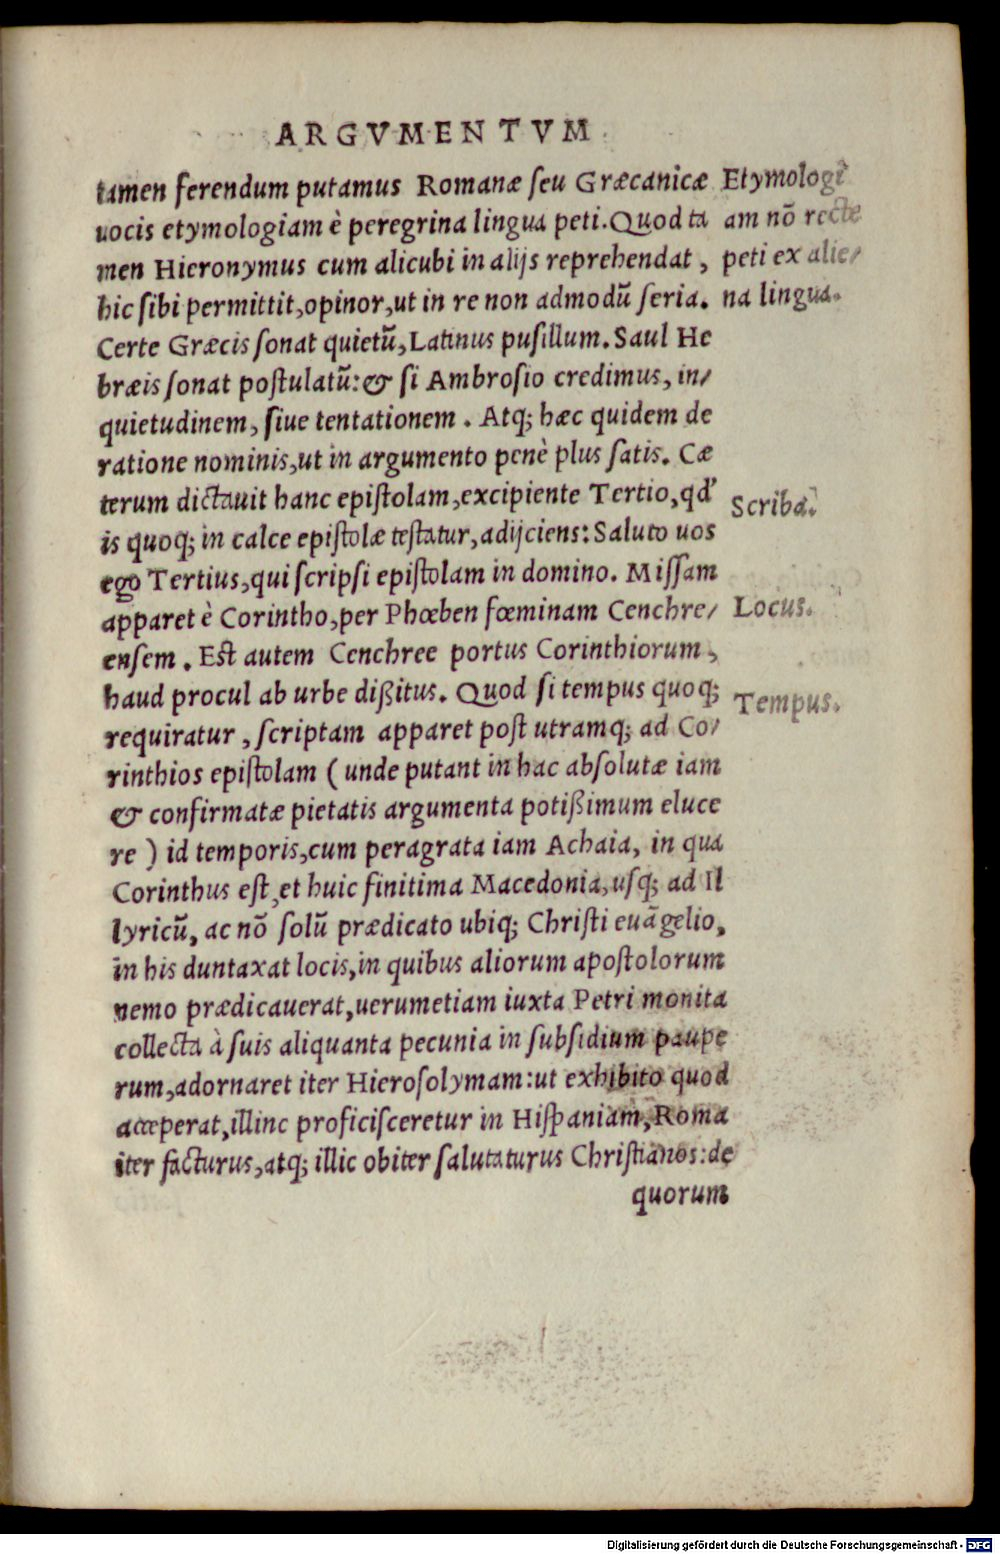 ARGVMENTVM
tamen ferendum putamus Romanæ ſeu Græcanicæ
uocis etymologiam è peregrina lingua peti. Quod ta
men Hieronymus cum alicubi in alijs reprehendat ,
hic ſibi permittit, opinor, ut in re non admodū ſeria.
Certe Græcis ſonat quietū, Latinus puſillum. Saul He
bræis ſonat poſtulatū: & ſi Ambroſio credimus, in/
quietudinem, ſiue tentationem . Atq; hæc quidem de
ratione nominis, ut in argumento penè plus ſatis. Cæ
terum dictauit hanc epiſtolam, excipiente Tertio, qd'
is quoq; in calce epiſtolæ teſtatur, adijciens: Saluto uos
ego Tertius, qui ſcripſi epiſtolam in domino. Miſſam
apparet è Corintho, per Phœben fœminam Cenchre/
enſem . Est autem Cenchree portus Corinthiorum ,
haud procul ab urbe dißitus. Quod ſi tempus quoq;
requiratur , ſcriptam apparet poſt utramq; ad Co/
rinthios epiſtolam ( unde putant in hac abſolutæ iam
& confirmatæ pietatis argumenta potißimum eluce
re ) id temporis, cum peragrata iam Achaia, in qua
Corinthus eſt, et huic finitima Macedonia, uſq; ad Il
lyricū, ac nō ſolū prædicato ubiq; Chriſti euāgelio,
in his duntaxat locis, in quibus aliorum apoſtolorum
nemo prædicauerat, uerumetiam iuxta Petri monita
collecta à ſuis aliquanta pecunia in ſubſidium paupe
rum, adornaret iter Hieroſolymam: ut exhibito quod
acceperat, illinc proficiſceretur in Hiſpaniam, Roma
iter facturus, atq; illic obiter ſalutaturus Chriſtianos: de
quorum
Etymologi
am nō recte
peti ex alie/
na lingua.
Scriba.
Locus.
Tempus.
Digitalisierung gefördert durch die Deutsche Forschungsgemeinschaft - DFG